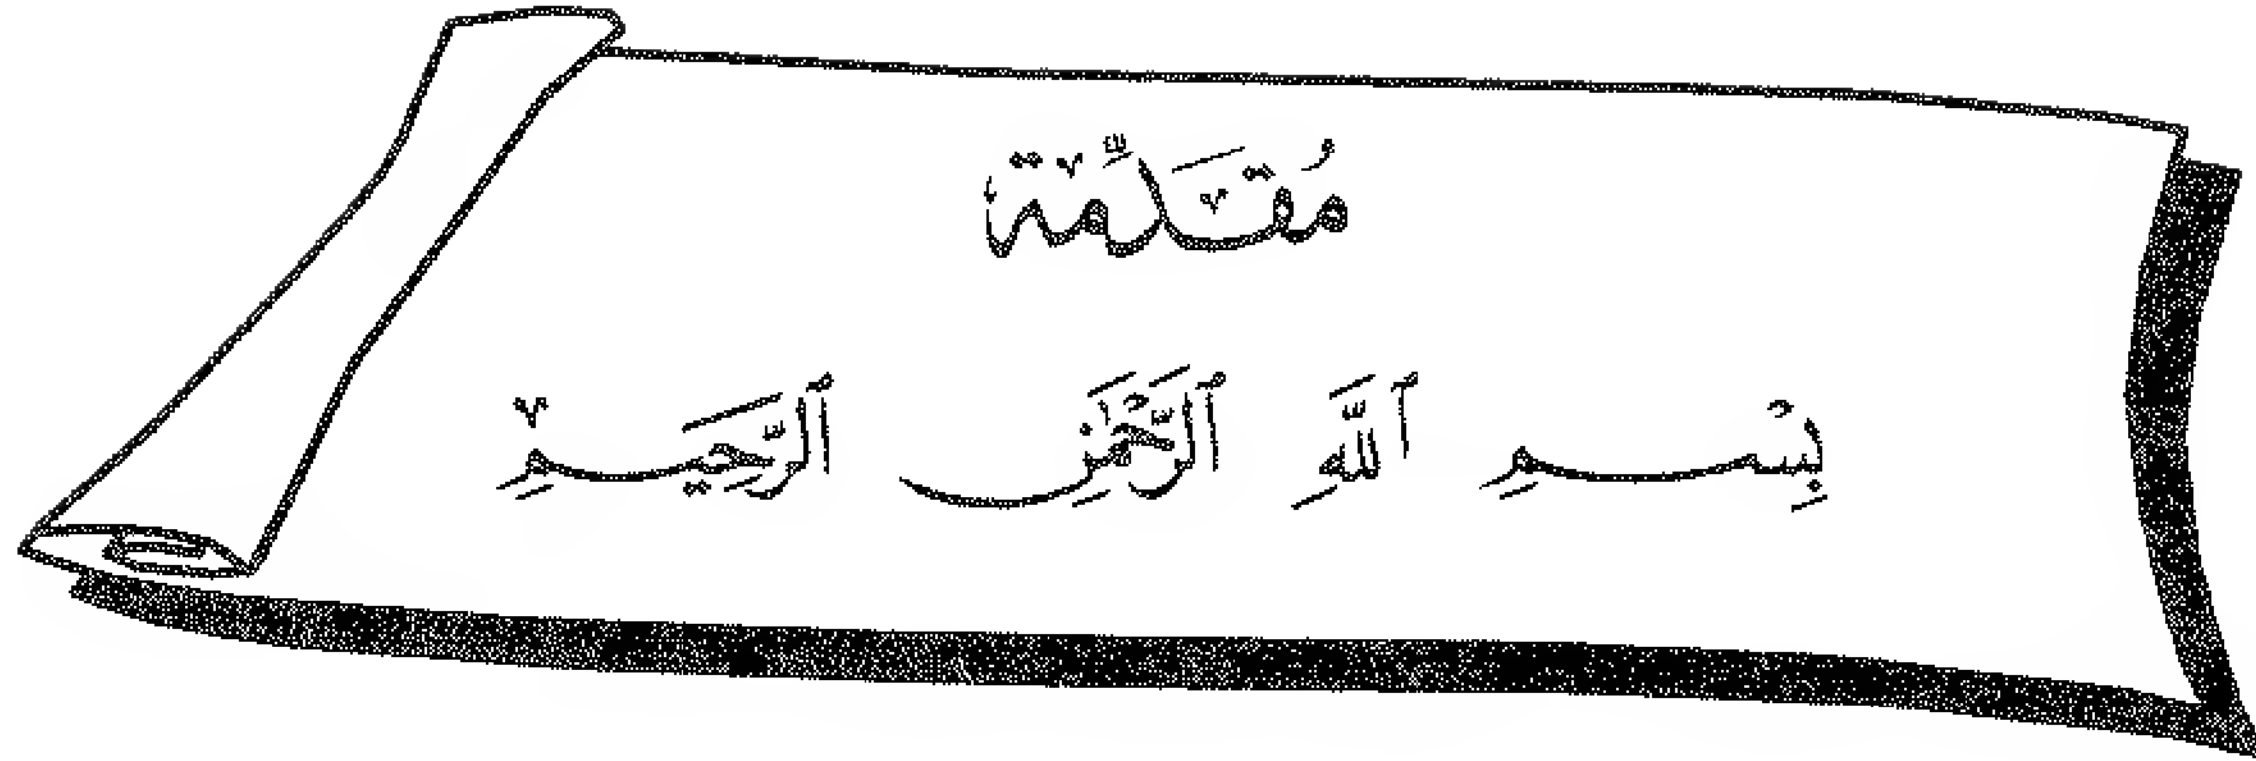 مُقَدِّمَة
بِسْمِ ٱللَّهِ ٱلرَّحْمَٰنِ ٱلرَّحِيمِ